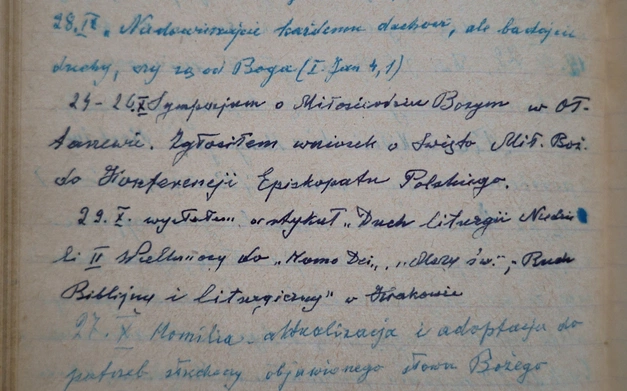 28.IX. Nie dowierzajcie każdemu duchowi, ale badajcie
duchy, czy są od Boga (I. Jan 4,1)
24-26.X Sympozjum o Miłosierdziu Bożym w Oł-
tarzewie. Zgłosiłem wniosek o Święto Mił. Boż.
do Konferencji Episkopatu Polskiego.
29.X. wysłałem artykuł „Duch liturgii Niedzie
li II Wielkanocy do „Homo Dei", „Mszy św."; Ruch
Biblijny i liturgiczny" w Krakowie
27.X Homilia - aktualizacja i adaptacja do
potrzeb słuchaczy objawionego słowa Bożego